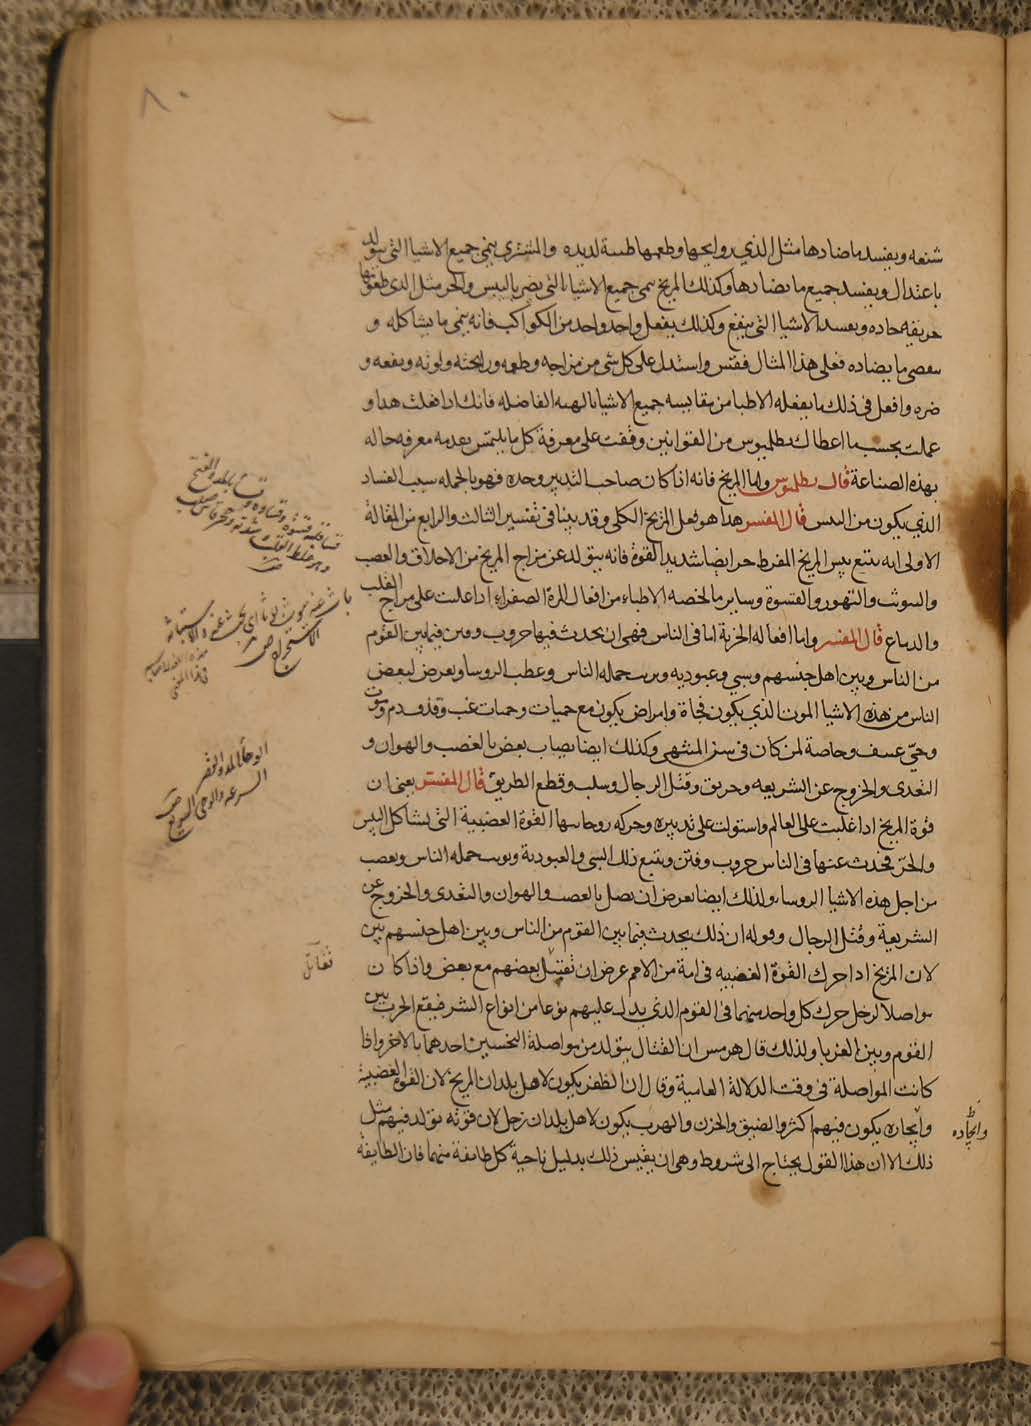 ٨٠
شنعه ويفسد ما ضادها مثل الذي روايحها وطعمها طيبة لذيذه والمشتري ينمي جميع الاشيا التي يتولد
باعتدال ويفسد جميع ما يضادها وكذلك المريخ ينمي جميع الاشياء التي يضر باليبس والحر مثل الذي طعومها
حريفه حاده ويفسد الاشيا التي ينفع وكذلك يفعل واحد واحد من الكواكب فانه ينمي ما يشاكله و
ينقص ما يضاده فعلى هذا المثال فقس واستدل على كل شي من مزاجه وطعمه ورايحته ولونه ونفعه و
ضره وافعل في ذلك ما يفعله الاطبا من مقايسه جميع الاشيا بالهيه الفاضله فانك اذا فعلت هذا و
عملت بحسب ما اعطاك بطلميوس من القوانين وقفت على معرفة كل ما يلتمس تقدمه معرفه حاله
بهذه الصناعة قال بطلميوس واما المريخ فانه اذا كان صاحب التدبير وحده فهو بالجمله سبب الفساد
الذي يكون من اليبس قال المفسر هذا هو فعل المريخ الكلي وقد بينا في تفسير الثالث والرابع من المقالة
الاولى انه يتبع يبس المريخ المفرط حر ايضا شديد القوة فانه يتولد عن مزاج المريخ من الاخلاق والغضب
والتهور والقسوة وساير ما لخصه الاطباء من افعال المرة الصفراء اذا غلبت على مزاج القلب
والدماغ قال المفسر واما افعاله الجزية اما في الناس فهي ان يحدث فيها حروب وفتن فيما بين القوم
من الناس وبين اهل جنسهم وسبي وعبوديه حمله الناس وعطب الروسا ويعرض لبعض
الناس من هذه الاشيا الموت الذي يكون فجاة وامراض يكون مع حميات وحميات غب وقذف دم وموت
وحي عسف وخاصة لمن كان في سن المنتهى وكذلك ايضا يصاب بعض بالغصب والهوان و
التعدى والخروج عن الشريعه وحريق وقتل الرجال وسلب وقطع الطريق قال المفسر يعني ان
قوة المريخ اذا غلبت على العالم واستولت على تدبيره وحركه روحانيتها القوة الغضبية التي يشاكل اليبس
والحر فيحدث عنها في الناس حروب وفتن ويتبع ذلك السبى والعبودية حمله الناس ويغصب
من اجل هذه الاشيا الروساء ولذلك ايضا يعرض ان يصل بالغصب والهوان والتعدى والخروج عن
الشريعة وقتل الرجال وقوله ان ذلك يحدث فيما بين القوم من الناس وبين اهل جنسهم بين
لان المريخ اذا حرك القوة الغضبيه في امة من الامم عرض ان تقتل بعضهم مع بعض واذا كان
مواصلا لزحل حرك كل واحد منهما في القوم الذي يدل عليهم نوعا من انواع الشر فيقع الحرب بين
القوم وبين الغربا ولذلك قال هرمس ان القتال يتولد من مواصلة النحسين احدهما بالاخر واذا
كانت المواصلة في وقت الدلالة العامية وقال ان الظفر يكون لاهل بلدان المريخ لان القوة الغضبية
وايجاده يكون فيهم اكثر والضيق والحزن والهرب يكون لاهل بلدان زحل لان قوته تولد فيهم مثل
ذلك الا ان هذا القول يحتاج الى شروط وهي ان يقيس ذلك بدليل ناحية كل طايفة منهما فان الطايفة
الوحا بالمد والقصر
السرعه والوحي السريع
تقاتل